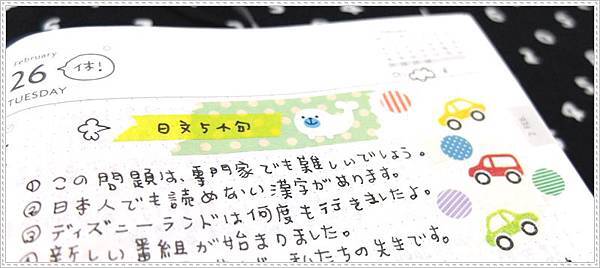 February
26
TUESDAY
休!
日文5小句
① この問題は、専門家でも難しいでしょう。
② 日本人でも読めない漢字があります。
③ ディズニーランドは何度も行きましたよ。
④ 新しい番組が始まりました。
私たちの先生です。